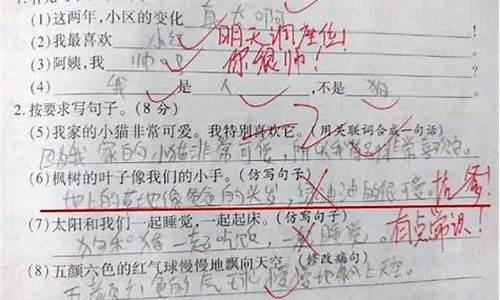 (1)这两年,小区的变化 真大啊
(2)我最喜欢 小红 明天调座位!
(3)阿姨,我 帅吧 你很帅!
(4) 我 是 人 ,不是 狗
2.按要求写句子。(8 分)
(5)我家的小猫非常可爱。我特别喜欢它。(用关联词合成一句话)
因为我家的小猫非常可爱,所以我非常喜欢它。
(6)枫树的叶子像我们的小手。(仿写句子)
地上的草地像爸爸的头发,绿油油的很可爱。
(7)太阳和我们一起睡觉,一起起床。(仿写句子)
狗和猪一起吃饭,一起睡觉。有点常识!
(8)五颜六色的红气球慢慢地飘向天空。(修改病句)
五颜六色的气球慢慢地飘上天空。